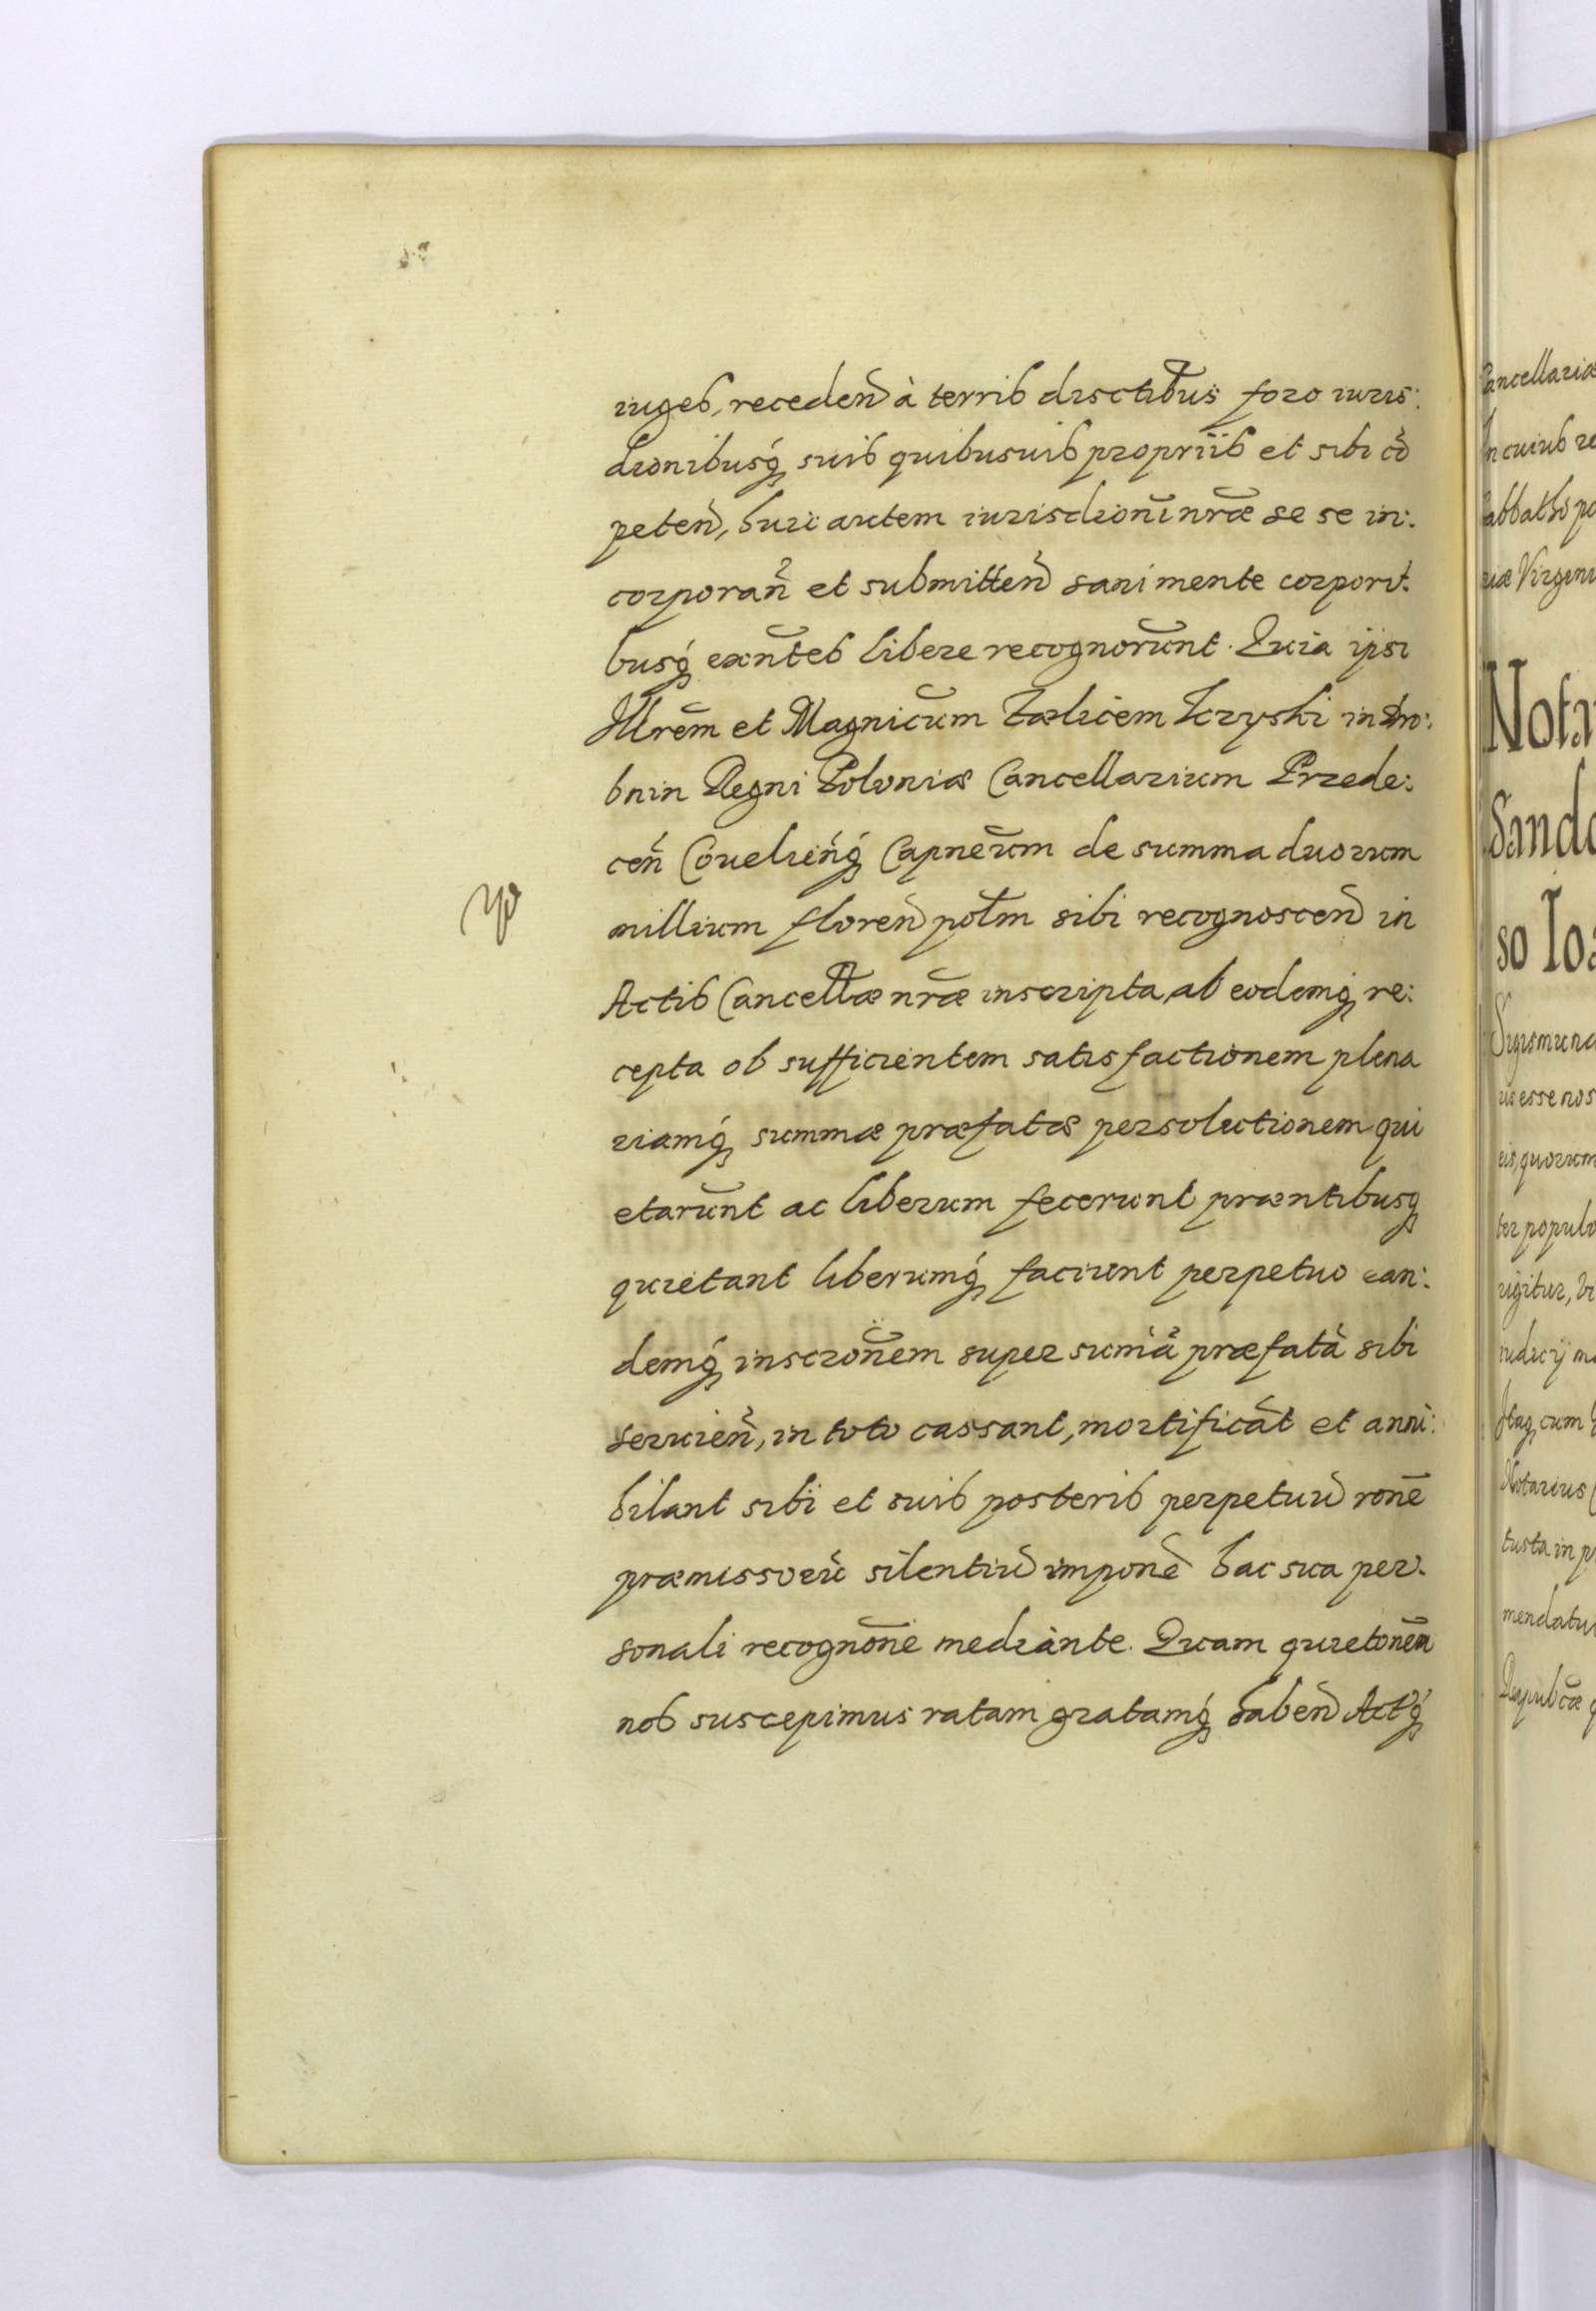 iuges, receden̄ à terris disctib̃us foro iuris:
dionibusq́ suis quibusuis propriis et sibi cō
peten̄, huic autem iurisdioni nr̃æ se se in:
corporan̄ et submitten̄ sani mente corpori:
busq́ exn̄tes libere recognorũnt. Quia ipsi
Illrẽm et Magnicũm Fælicem Krzyski in Dro:
bnin Regni Poloniæ Cancellarium Przede:
cen̄ Coneluen̄q́ Capneũm de summa duorum
millium floren̄ pol̃m sibi recognoscen̄ in
Actis Cancell̃æ nr̃æ inscripta, ab eodemq́ re:
cepta ob sufficientem satisfactionem plena
riamq́ summæ præfatæ persolutionem qui
etarũnt ac liberum fecerunt præntibusq́
quietant liberumq́ faciunt perpetuo ean:
demq́ inscrõnem super sum̄ā præfatā sibi
seruien̄, in toto cassant, mortificāt et anni:
hilant sibi et suis posteris perpetuū rone̅
præmissoru̅ silentiū imponē hac sua per:
sonali recognõne mediante. Quam quietonẽm
nos suscepimus ratam gratamq́ haben̄ Actq́
cancellariæ
In cuius re
Sabbatho po
riæ Virginis
Nota
Sando
so Ioa
Sigismund
is esse nos
eis, quorum
ter populo
rigitur, vi
iudicij ma
Itaq, cum
Notarius
iusta in p
mendatu
Reipub̃cæ q